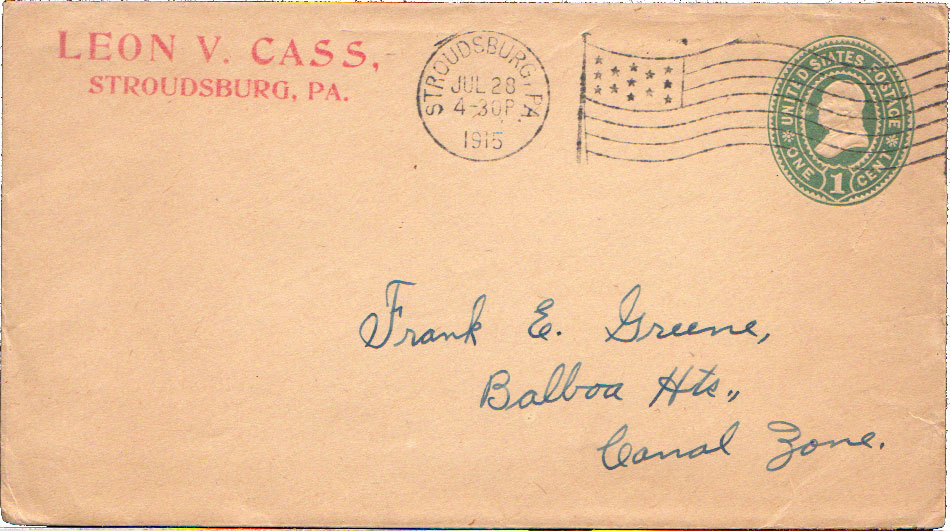 LEON V. CASS,
STROUDSBURG, PA.
STROUDSBURG, PA.
JUL 28
4-30P
1915
UNITED STATES POSTAGE
ONE 1 CENT
Frank E. Greene,
Balboa Hts.,
Canal Zone.